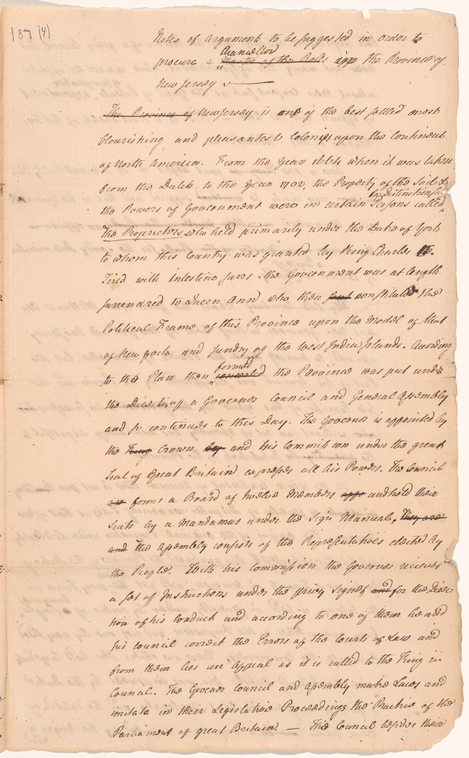 187 (4)
Notes of Argument to be suggested in order to
Chancellor
procure a Master of the Rolls appo the Province of
New Jersey
The Province of New Jersey is one of the best settled most
flourishing and pleasantest Colonies upon the Continent
of North America. From the Year 1664 when it was taken
from the Dutch to the Year 1702, the Property of the Soil &
the Powers of Government were in certain Persons called
by Distinction
The Proprietors who held primarily under the Duke of York
to whom this Country was granted by King Charles
Tired with intestine Jars the Government was at length
surrendred to Queen Ann who then constituted the
Political Frame of this Province upon the Model of that
of New York and sundry of the West India Islands. According
formed
to the Plan then the Province was put under
the Direction of a Governor Council and General Assembly
and so continues to this Day. The Governor is appointed by
the King Crown by and his Commission under the great
Seal of Great Britain expresses all his Powers. The Council
are forms a Board of twelve Members appo and hold their
Seats by a Mandamus under the Sign Manual, They are
and the Assembly consists of the Representatives elected by
the People. With his Commission the Governor receives
a Set of Instructions under the privy Signet and for the Direc
tion of his Conduct and according to one of them he and
his Council correct the Errors of the Courts of Law and
from them lies an Appeal as it is called to the King in
Council. The Governor Council and Assembly make Laws and
imitate in their Legislative Proceedings the Practice of the
Parliament of great Britain — The Council besides their